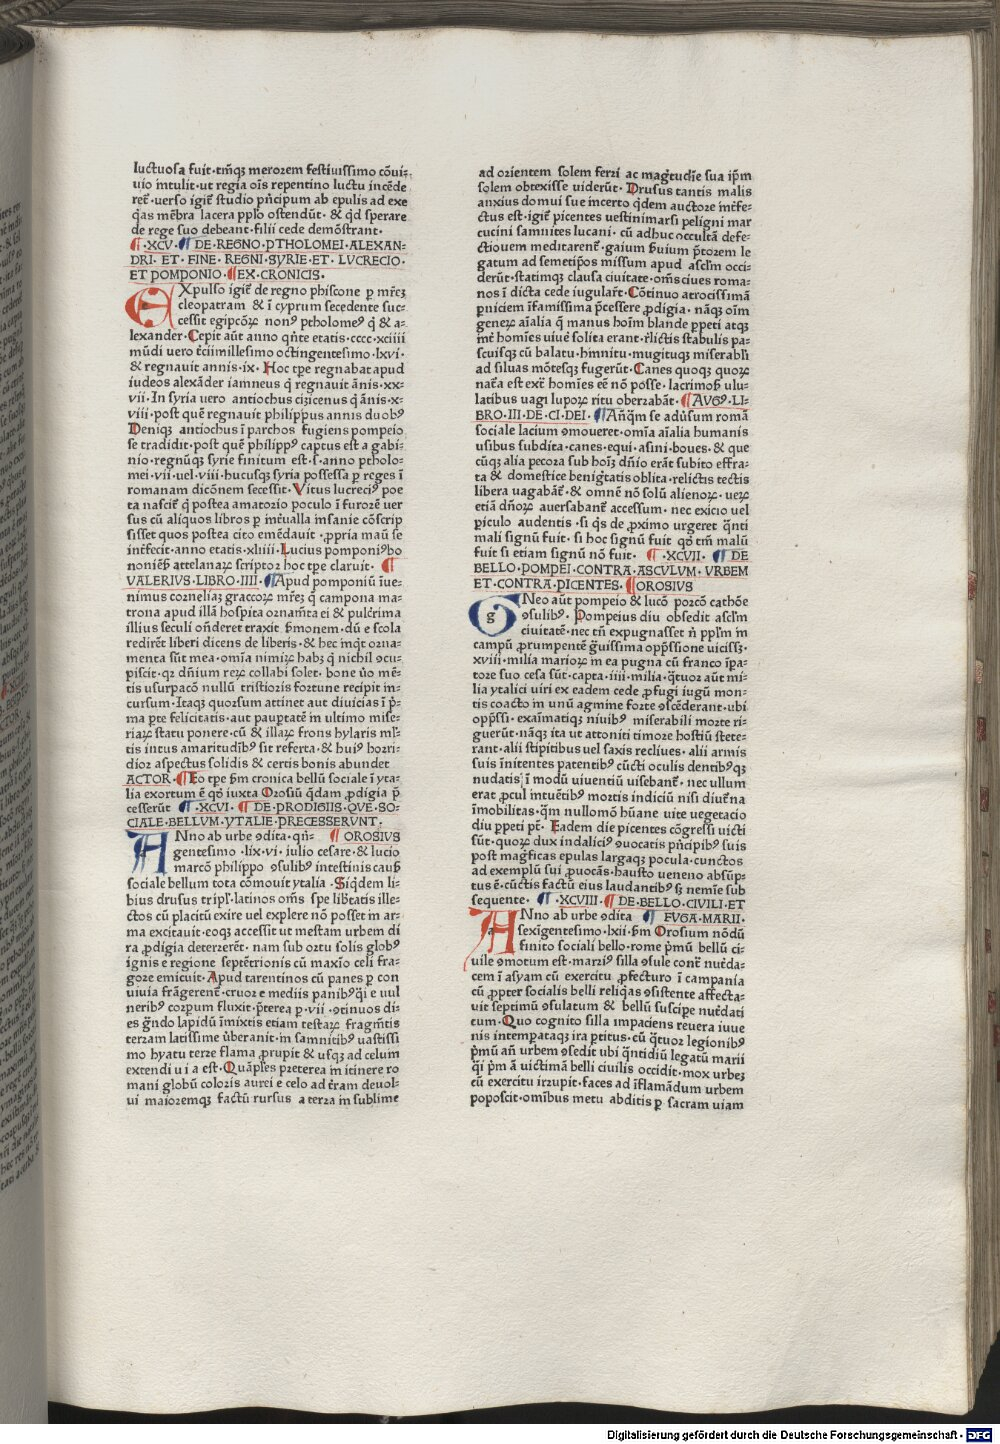 luctuosa fuit·tm̃qꝫ merorem festiuissimo cōui-
uio intulit·ut regia oĩs repentino luctu incēde
ret̃·uerso igit̃ studio pñcipum ab epulis ad exe
qas mēbra lacera pplo ostendūt·& qd sperare
de rege suo debeant·filii cede demōstrant·
¶·XCV·¶DE·REGNO·PTHOLOMEI·ALEXAN-
DRI·ET·FINE·REGNI·SYRIE·ET·LVCRECIO·
ET POMPONIO·¶EX·CRONICIS·
EXpulso igit̃ de regno phiscone p mr̃eꝫ
cleopatram & ī cyprum secedente suc-
cessit egipcōꝝ nonꝰ ptholomeꝰ q̃ & a-
lexander·Cepit aūt anno qn̄te etatis·cccc·xciiii
mūdi uero t̃ciimillesimo octingentesimo·lxvi·
& regnauit annis·ix·Hoc tp̄e regnabat apud
iudeos alexāder iamneus q̃ regnauit ānis·xx-
vii·In syria uero antiochus cizicenus q̃ ānis·x-
viii·post quē regnauit philippus annis duobꝰ
Deniqꝫ antiochus ī parchos fugiens pompeio
se tradidit·post quē philippꝰ captus est a gabi-
nio·regnūqꝫ syrie finitum est·s·anno ptholo-
mei·vii·uel·viii·hucusqꝫ syria possessa p reges ī
romanam dicōnem secessit·Vitus lucreciꝰ poe
ta nascit̃ q̃ postea amatorio poculo ī furorē uer
sus cū aliquos libros p int̃ualla insanie cōscrip
sisset quos postea cito emēdauit·ꝓpria manū se
int̃fecit·anno etatis·xliiii·Lucius pomponiꝰ bo
noniēß attelanaꝝ scriptor hoc tp̄e claruit·¶
VALERIVS·LIBRO·IIII·¶Apud pomponiū īue-
nimus corneliaꝫ graccoꝝ mr̃eꝫ q̃ campona ma-
trona apud illā hospita ornam̃ta ei & pulc̃rima
illius seculi on̄deret traxit ß̄monem·dū e scola
redirēt liberi dicens de liberis·& hec inqt̃ orna-
menta sūt mea·omīa nimiꝝ habꝫ q̃ nichil ꝯcu-
piscit·qꝛ dñium reꝝ collabi solet·bone ůo mē-
tis usurpacō nullū tristioris fortune recipit in-
cursum·Itaqꝫ quorsum attinet aut diuicias ī p̄-
ma pte felicitatis·aut paupt̃atē in ultimo mise-
riaꝝ statu ponere·cū & illaꝝ frons hylaris ml̃-
tis intus amaritudībꝰ sit referta·& huiꝰ horri-
dior aspectus solidis & certis bonis abundet
ACTOR·¶Eo tp̄e ß̄m cronica bellū sociale ī yta-
lia exortum ē qꝰ iuxta Orosiū q̃dam ꝓdigia p̄
cesserūt ¶·XCVI·¶DE·PRODIGIIS·QVE·SO-
CIALE·BELLVM·YTALIE·PRECESSERVNT·
ANno ab urbe ꝯdita·qñ- ¶OROSIVS
gentesimo·lix·vi·iulio cesare·& lucio
marcō philippo ꝯsulibꝰ intestinis causß
sociale bellum tota cōmouit ytalia·Siq̃dem li-
bius drusus tripl̃·latinos om̃s spe libt̃atis ille-
ctos cū placitū exire uel explere nō posset in ar-
ma excitauit·eoqꝫ accessit ut mestam urbem di
ra ꝓdigia deterzerēt·nam sub ortu solis globꝰ
ignis e regione septētrionis cū maxīo celi fra-
gore emicuit·Apud tarentinos cū panes p con
uiuia frāgerent̃·cruor e mediis panibꝰ q̃i e uul
neribꝰ corpum fluxit·p̄terea p·vii·ꝯtinuos di-
es g̃ndo lapidū īmixtis etiam testaꝝ fragm̄tis
terzam latissime ůberanit·in samnitibꝰ uastissi
mo hyatu terze flama ꝓrupit & usqꝫ ad celum
extendi u i a est·Quāples preterea in itinere ro
mani globū coloris aurei e celo ad t̃ram deuol-
ui maioremqꝫ factū rursus a terza in sublime
ad orientem solem ferzi ac magt̃udīe sua ip̄m
solem obtexisse uiderūt·Drusus tantis malis
anxius domui sue incerto q̃dem auctore int̃fe-
ctus est·igit̃ picentes uestini marsi peligni mar
cucini samnites lucani·cū adhuc occultā defe-
ctiouem meditarent̃·gaium ß̄uium p̄torem le
gatum ad semetip̄os missum apud asclm̄ occi-
derūt·statimqꝫ clausa ciuitate·om̃s ciues roma-
nos ī dicta cede iugular̃t·Cōtinuo atrocissimā
p̄niciem īfamissima p̄cessere ꝓdigia·nāqꝫ oīm
geneꝝ aīalia q̃ manus hoīm blande ppeti atqꝫ
int̃ homīes uiue solita erant·r̃lictis stabulis pa-
scuisqꝫ cū balatu·hinnitu·mugituqꝫ miserabli
ad siluas mōtesqꝫ fugerūt·Canes quoqꝫ quoꝝ
nat̃a est ext̃ homīes eē nō posse·lacrimoß ulu-
latibus uagi lupoꝝ ritu oberzabāt·¶AVGꝰ·LI-
BRO·III·DE·CI·DEI·¶Añq̃m se aduͤsum romā
sociale lacium ꝯmoueret·omīa aīalia humanis
usibus subdita·canes·equi·asini·boues·& que
cūqꝫ alia pecora sub hoīꝫ dñio erāt·subito effra-
ta & domestice benig̃tatis oblita·relictis tectis
libera uagabāt̃·& omnē nō solū alienoꝝ·ueꝝ
etiā dñoꝝ auersabant̃ accessum·nec exicio uel
piculo audentis·si qs̃ de ꝓximo urgeret q̃nti
mali signū fuit·si hoc signū fuit qꝰ tm̄ malū
fuit si etiam signū nō fuit·¶·XCVII·¶DE
BELLO·POMPEI·CONTRA·ASCVLVM·VRBEM
ET·CONTRA·PICENTES·¶OROSIVS
GNeo aūt pompeio & lucō porcō cathōe
ꝯsulibꝰ·Pompeius diu obsedit asclm̄
ciuitatē·nec tñ expugnasset n̄ pplm̄ in
campū ꝓrumpentē g̃uissima opp̄ssione uicissꝫ·
xviii·milia marioꝝ in ea pugna cū franco īpa-
tore suo cesa sūt·capta·iiii·milia·q̃tuor aūt mi-
lia ytalici uiri ex eadem cede ꝓfugi iugū mon-
tis coacto in unū agmine forte ꝯscēderant·ubi
opp̄ssi·exaīmatiqꝫ niuibꝰ miserabili morte ri-
guerūt·nāqꝫ ita ut attoniti timore hostiū stete-
rant·alii stipitibus uel saxis recliues·alii armis
suis īnitentes patentibꝰ cūcti oculis dentibꝰqꝫ
nudatis ī modū uiuentiū uisebant̃·nec ullum
erat ꝓcul intuētibꝰ mortis indiciū nisi diut̃na
īmobilitas·q̃m nullomō hūane uite uegetacio
diu ppeti pt̃·Eadem die picentes cōgressi uicti
sūt·quoꝝ dux indaliciꝰ ꝯuocatis pñcipibꝰ suis
post mag̃ficas epulas largaqꝫ pocula·cunctos
ad exemplū sui ꝓuocās·hausto ueneno absūp-
tus ē·cūctis factū eius laudantibꝰ sꝫ nemīe sub
sequente·¶·XCVIII·¶DE·BELLO·CIVILI·ET
ANno ab urbe ꝯdita ¶FVGA·MARII·
sexigentesimo·lxii·ß̄m Orosium nōdū
finito sociali bello·rome p̄mū bellū ci-
uile ꝯmotum est·mariꝰ silla ꝯsule cont̃ nut̃da-
cem ī asyam cū exercitu ꝓfecturo ī campania
cū ꝓpter socialis belli reliq̃as ꝯsistente affecta-
uit septimū ꝯsulatum & bellū suscipe nut̃dati
cum·Quo cognito silla impaciens reuera iuue
nis intemperataqꝫ ira p̄titus·cū q̃tuor legionibꝰ
p̄mū añ urbem ꝯsedit ubi q̃ntidiū legatū marii
q̃i p̄m a uictimā belli ciuilis occidit·mox urbeꝫ
cū exercitu irzupit·faces ad īflamādum urbem
poposcit·omībus metu abditis p sacram uiam
Digitalisierung gefördert durch die Deutsche Forschungsgemeinschaft - DFG